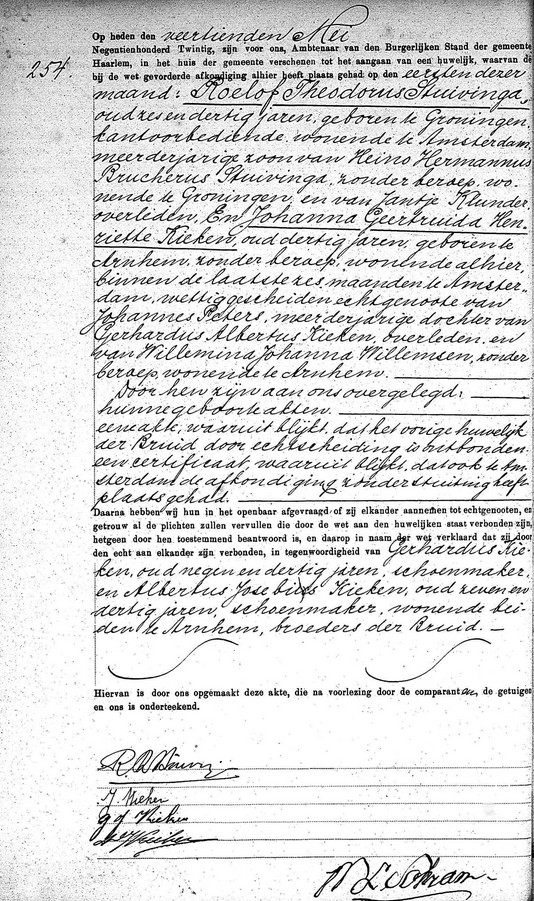 Op heden den veertienden Mei
Negentienhonderd Twintig, zijn voor ons, Ambtenaar van den Burgerlijken Stand der gemeente
Haarlem, in het huis der gemeente verschenen tot het aangaan van een huwelijk, waarvan de
254. bij de wet gevorderde afkondiging alhier heeft plaats gehad op den eersten dezer
maand: Roelof Theodorus Stuivinga,
oud zes en dertig jaren, geboren te Groningen,
kantoorbediende, wonende te Amsterdam,
meerderjarige zoon van Heino Hermannus
Brucherus Stuivinga, zonder beroep, wo-
nende te Groningen, en van Jantje Klunder,
overleden, En Johanna Geertruida Hen-
riette Kieken, oud dertig jaren, geboren te
Arnhem, zonder beroep, wonende alhier,
binnen de laatste zes maanden te Amster-
dam, wettig gescheiden echtgenoote van
Johannes Peters, meerderjarige dochter van
Gerhardus Albertus Kieken, overleden, en
van Willemina Johanna Willemsen, zonder
beroep, wonende te Arnhem.
Door hen zijn aan ons overgelegd:
hunne geboorteakten.
eene akte, waaruit blijkt, dat het vorige huwelijk
der Bruid door echtscheiding is ontbonden
een certificaat, waaruit blijkt, dat ook te Am-
sterdam de afkondiging zonder stuiting heeft
plaats gehad.
Daarna hebben wij hun in het openbaar afgevraagd of zij elkander aannemen tot echtgenooten, en
getrouw al de plichten zullen vervullen die door de wet aan den huwelijken staat verbonden zijn,
hetgeen door hen toestemmend beantwoord is, en daarop in naam der wet verklaard dat zij door
den echt aan elkander zijn verbonden, in tegenwoordigheid van Gerhardus Kie-
ken, oud negen en dertig jaren, schoenmaker,
en Albertus Kieken, oud zeven en
dertig jaren, schoenmaker, wonende bei-
den te Arnhem, broeders der Bruid.
Hiervan is door ons opgemaakt deze akte, die na voorlezing door de comparanten, de getuigen
en ons is onderteekend.